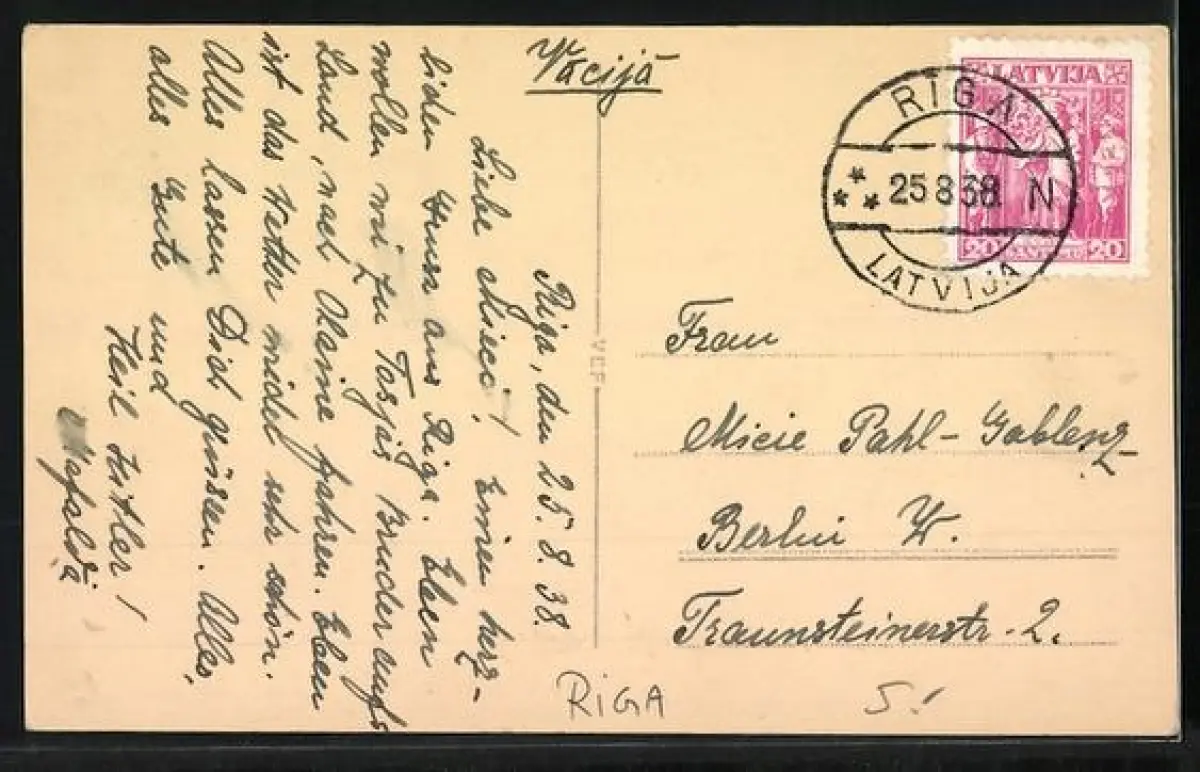 Vācijā
LATVIJA
20 20
RIGA
25 8 38 N
LATVIJA
Riga, den 25.8.38.
Liebe Mieci! Einen herz-
liden Gruss aus Riga. Eben
wollen wir zu Tasjas Bruder aufs
Land, nach Olaine fahren. Eben
ist das Wetter wieder sehr schön.
Alles lassen Dich grüssen. Alles,
alles Gute und
Heil Hitler!
Mafalda
VEF
Frau
Micie Pahl-Gablenz
Berlin W.
Traunsteinerstr. 2.
RIGA
5!